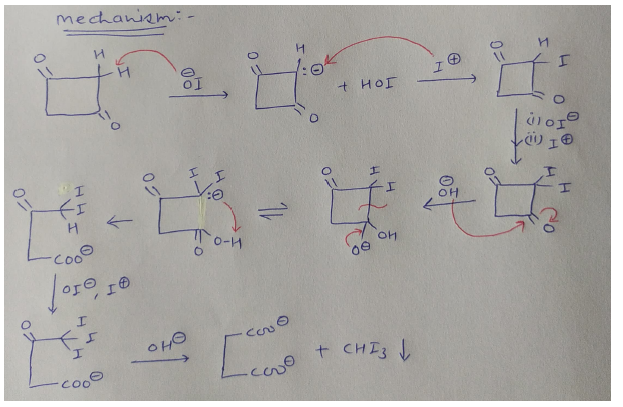 mechanism:-
O H H O
⊖OI
O H :⊖ O + HOI
I⊕
O H I O
(i) OI⊖
(ii) I⊕
O I I O
⊖OH
O I I OH O⊖
⇌
O I I :⊖ O-H O
←
O I I H COO⊖
OI⊖, I⊕
O I I I COO⊖
OH⊖
COO⊖ COO⊖ + CHI3 ↓